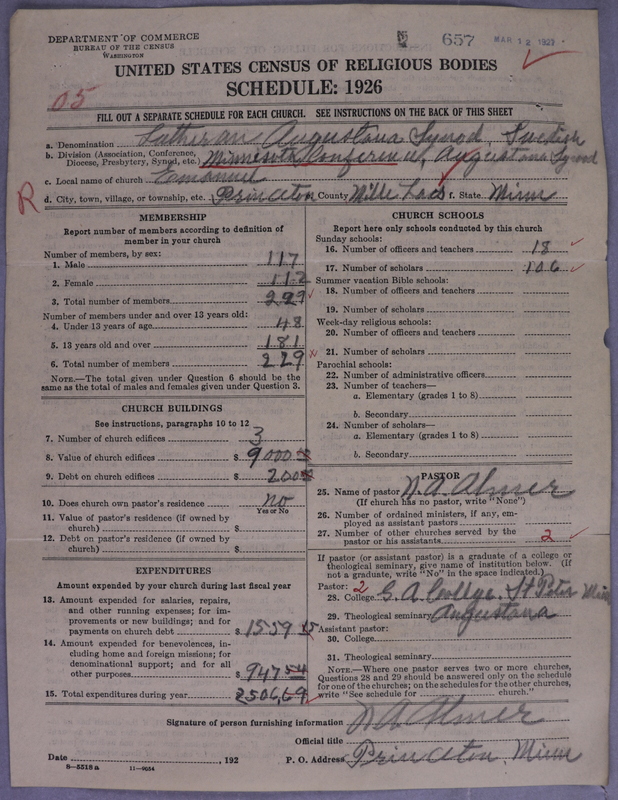 DEPARTMENT OF COMMERCE
BUREAU OF THE CENSUS
WASHINGTON
657
MAR 12 1927
UNITED STATES CENSUS OF RELIGIOUS BODIES
SCHEDULE: 1926
05
FILL OUT A SEPARATE SCHEDULE FOR EACH CHURCH. SEE INSTRUCTIONS ON THE BACK OF THIS SHEET
a. Denomination Lutheran Augustana Synod, Swedish
b. Division (Association, Conference, Diocese, Presbytery, Synod, etc.) Minnesota Conference, Augustana Synod
c. Local name of church Emanuel
R
d. City, town, village, or township, etc. Princeton County Mille Lacs f. State Minn
MEMBERSHIP
Report number of members according to definition of
member in your church
Number of members, by sex:
1. Male 117
2. Female 112
3. Total number of members 229
Number of members under and over 13 years old:
4. Under 13 years of age 48
5. 13 years old and over 181
6. Total number of members 229
NOTE.—The total given under Question 6 should be the
same as the total of males and females given under Question 3.
CHURCH BUILDINGS
See instructions, paragraphs 10 to 12
7. Number of church edifices 3
8. Value of church edifices $ 9000
9. Debt on church edifices $ 200
10. Does church own pastor's residence no
Yes or No
11. Value of pastor's residence (if owned by
church) $
12. Debt on pastor's residence (if owned by
church) $
EXPENDITURES
Amount expended by your church during last fiscal year
13. Amount expended for salaries, repairs,
and other running expenses; for im-
provements or new buildings; and for
payments on church debt $ 1559 15
14. Amount expended for benevolences, in-
cluding home and foreign missions; for
denominational support; and for all
other purposes $ 947 54
15. Total expenditures during year 2506,69
CHURCH SCHOOLS
Report here only schools conducted by this church
Sunday schools:
16. Number of officers and teachers 18
17. Number of scholars 106
Summer vacation Bible schools:
18. Number of officers and teachers
19. Number of scholars
Week-day religious schools:
20. Number of officers and teachers
21. Number of scholars
Parochial schools:
22. Number of administrative officers
23. Number of teachers—
a. Elementary (grades 1 to 8)
b. Secondary
24. Number of scholars—
a. Elementary (grades 1 to 8)
b. Secondary
PASTOR
25. Name of pastor N. A. Almer
(If church has no pastor, write "None")
26. Number of ordained ministers, if any, em-
ployed as assistant pastors
27. Number of other churches served by the
pastor or his assistants 2
If pastor (or assistant pastor) is a graduate of a college or
theological seminary, give name of institution below. (If
not a graduate, write "No" in the space indicated.)
Pastor: 2
28. College G. A. College, St Peter Minn
29. Theological seminary Augustana
Assistant pastor:
30. College
31. Theological seminary
NOTE.—Where one pastor serves two or more churches,
Questions 28 and 29 should be answered only on the schedule
for one of the churches; on the schedules for the other churches,
write "See schedule for church."
Signature of person furnishing information N A Almer
Official title
Date , 192 P. O. Address Princeton, Minn
8—5518 a 11—9034